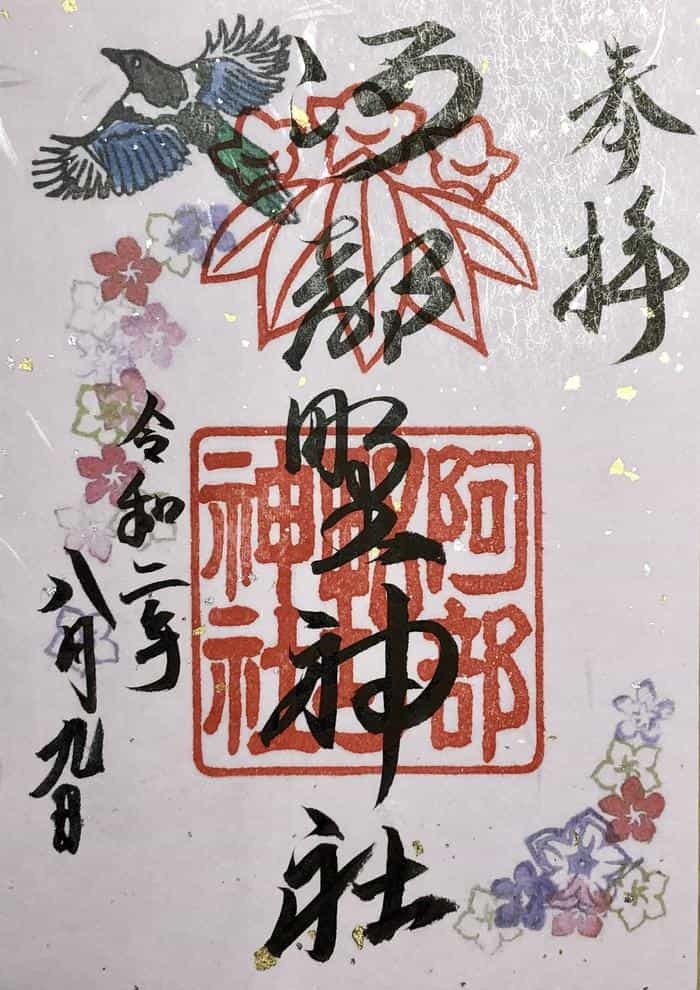 奉拝
阿部野神社
令和二年
八月九日
阿部
野
神社